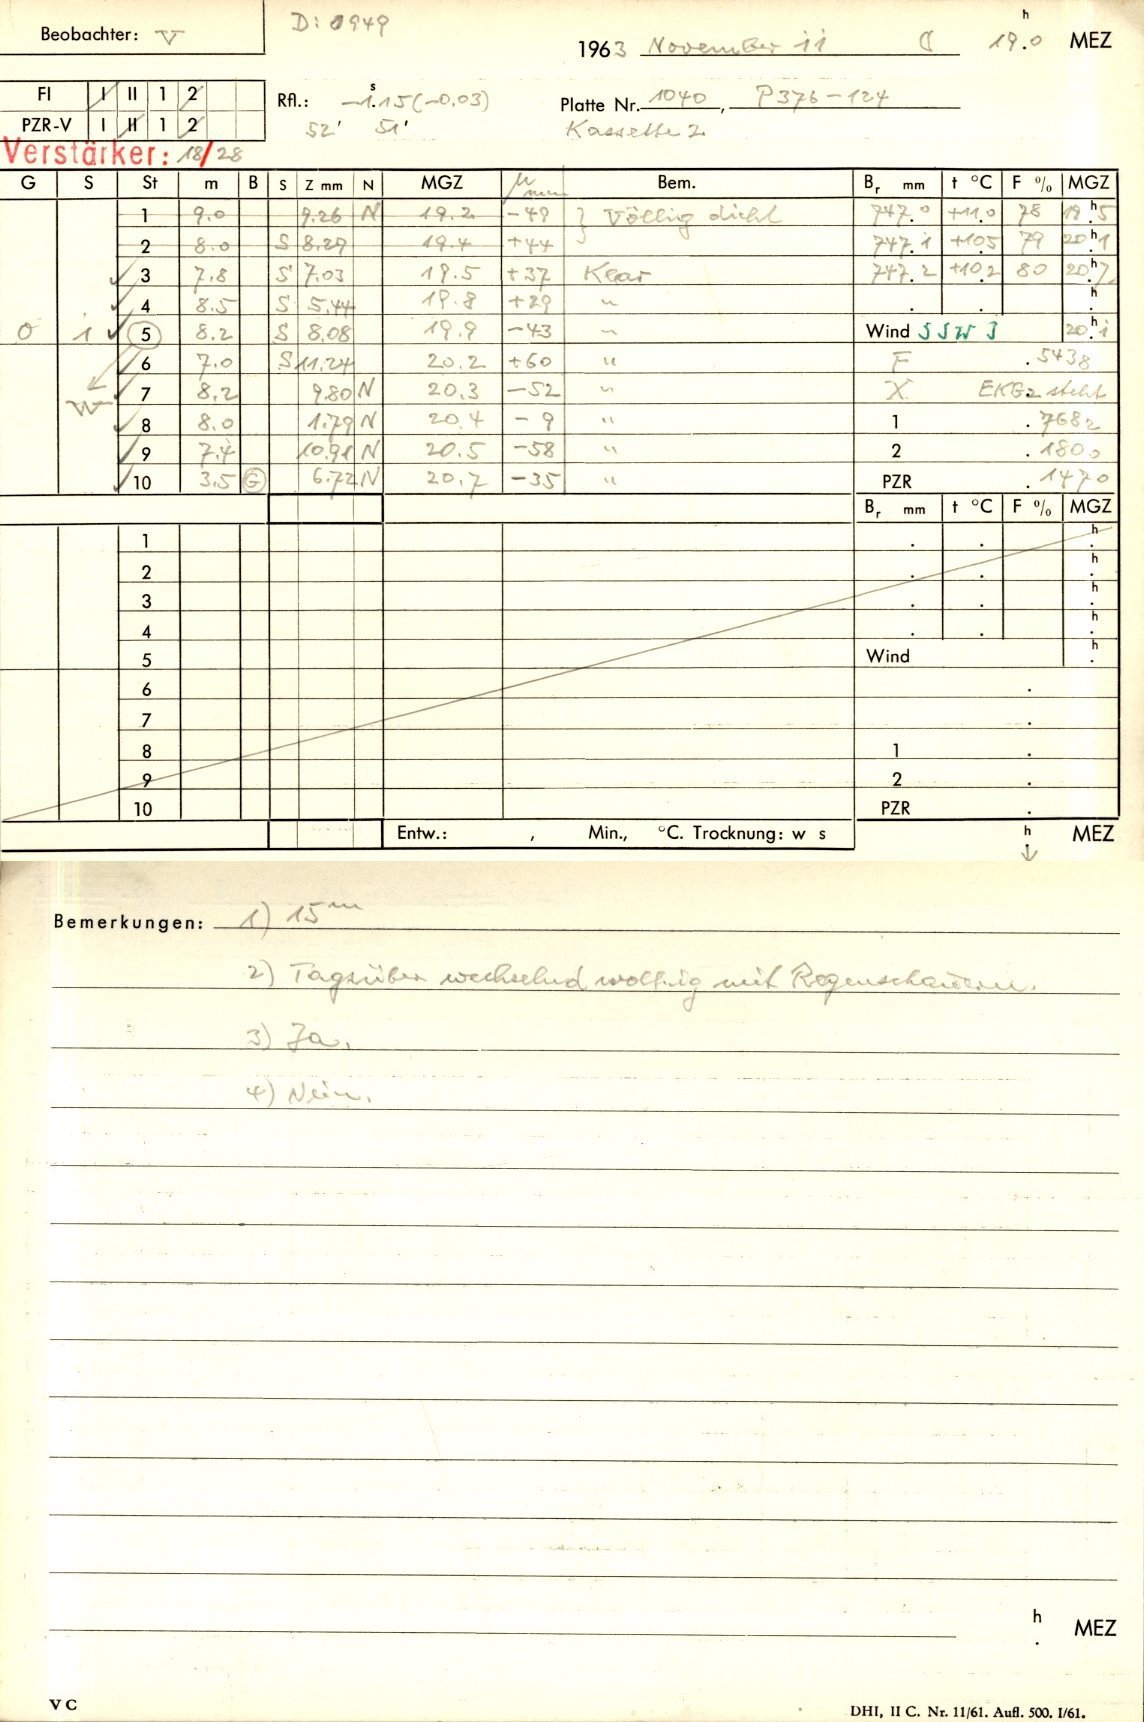 Beobachter: V
D: 0949
1963 November 11 ☾ 19h.0 MEZ
FI I II 1 2
PZR-V I II 1 2
Rfl.: -1s.15 (-0.03)
52' 51'
Platte Nr. 1040, P376-124
Kassette 2
Verstärker: 18/28
G S St m B S Z mm N MGZ μ mm Bem. Br mm t °C F % MGZ
1 9.0 9.26 N 19.2 -49 } Völlig dicht 747.0 +11.0 78 19h.5
2 8.0 S 8.29 19.4 +44 747.1 +10.5 79 20h.1
3 7.8 S 7.03 19.5 +37 Klar 747.2 +10.2 80 20h.7
4 8.5 S 5.44 19.8 +29 " . . h.
0 1 5 8.2 S 8.08 19.9 -43 " Wind SSW 3 20h.1
6 7.0 S 11.24 20.2 +60 " F .5438
W 7 8.2 9.80 N 20.3 -52 " X EKG2 steht
8 8.0 1.79 N 20.4 -9 " 1 .7682
9 7.4 10.91 N 20.5 -58 " 2 .1800
10 3.5 G 6.72 N 20.7 -35 " PZR .1470
Br mm t °C F % MGZ
1 . . h.
2 . . h.
3 . . h.
4 . . h.
5 Wind h.
6 .
7 .
8 1 .
9 2 .
10 PZR .
Entw.: , Min., °C. Trocknung: w s h MEZ
Bemerkungen: 1) 15m
2) Tagsüber wechselnd wolkig mit Regenschauern.
3) Ja.
4) Nein.
h. MEZ
V C
DHI, II C. Nr. 11/61. Aufl. 500. I/61.